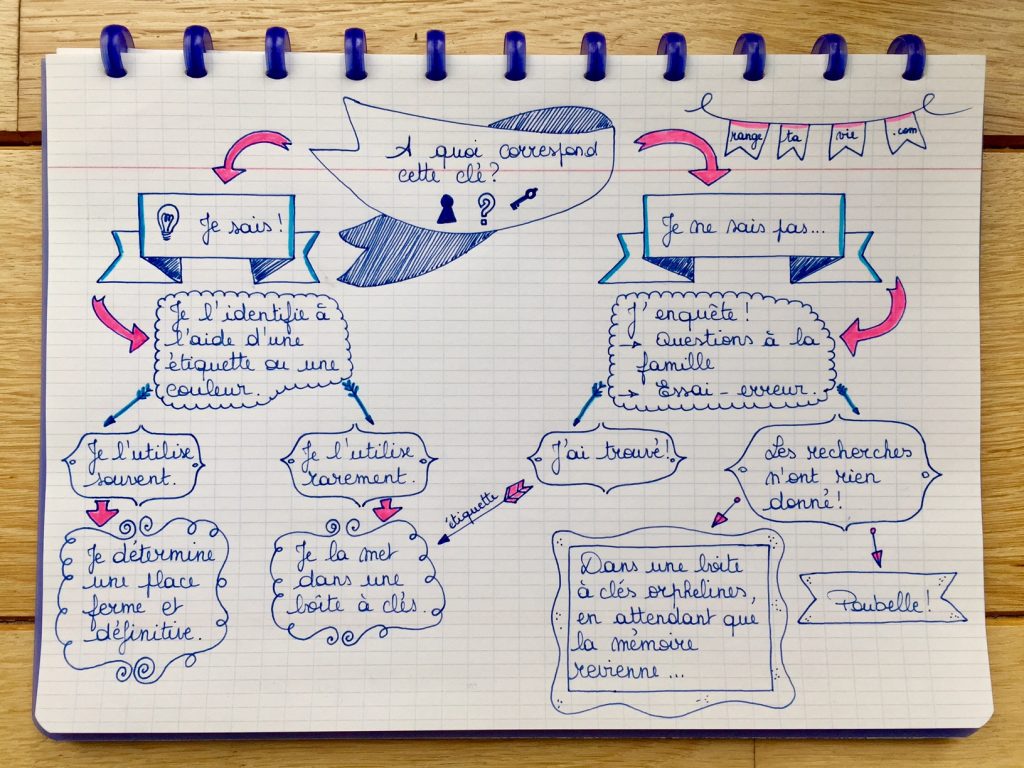 range ta vie .com
A quoi correspond
cette clé?
Je sais!
Je ne sais pas...
Je l'identifie à
l'aide d'une
étiquette ou une
couleur.
J'enquête!
→ Questions à la
famille
→ Essai-erreur.
Je l'utilise
souvent.
Je l'utilise
rarement.
J'ai trouvé!
Les recherches
n'ont rien
donné!
étiquette
Je détermine
une place
ferme et
définitive.
Je la met
dans une
boîte à clés.
Dans une boîte
à clés orphelines,
en attendant que
la mémoire
revienne...
Poubelle!